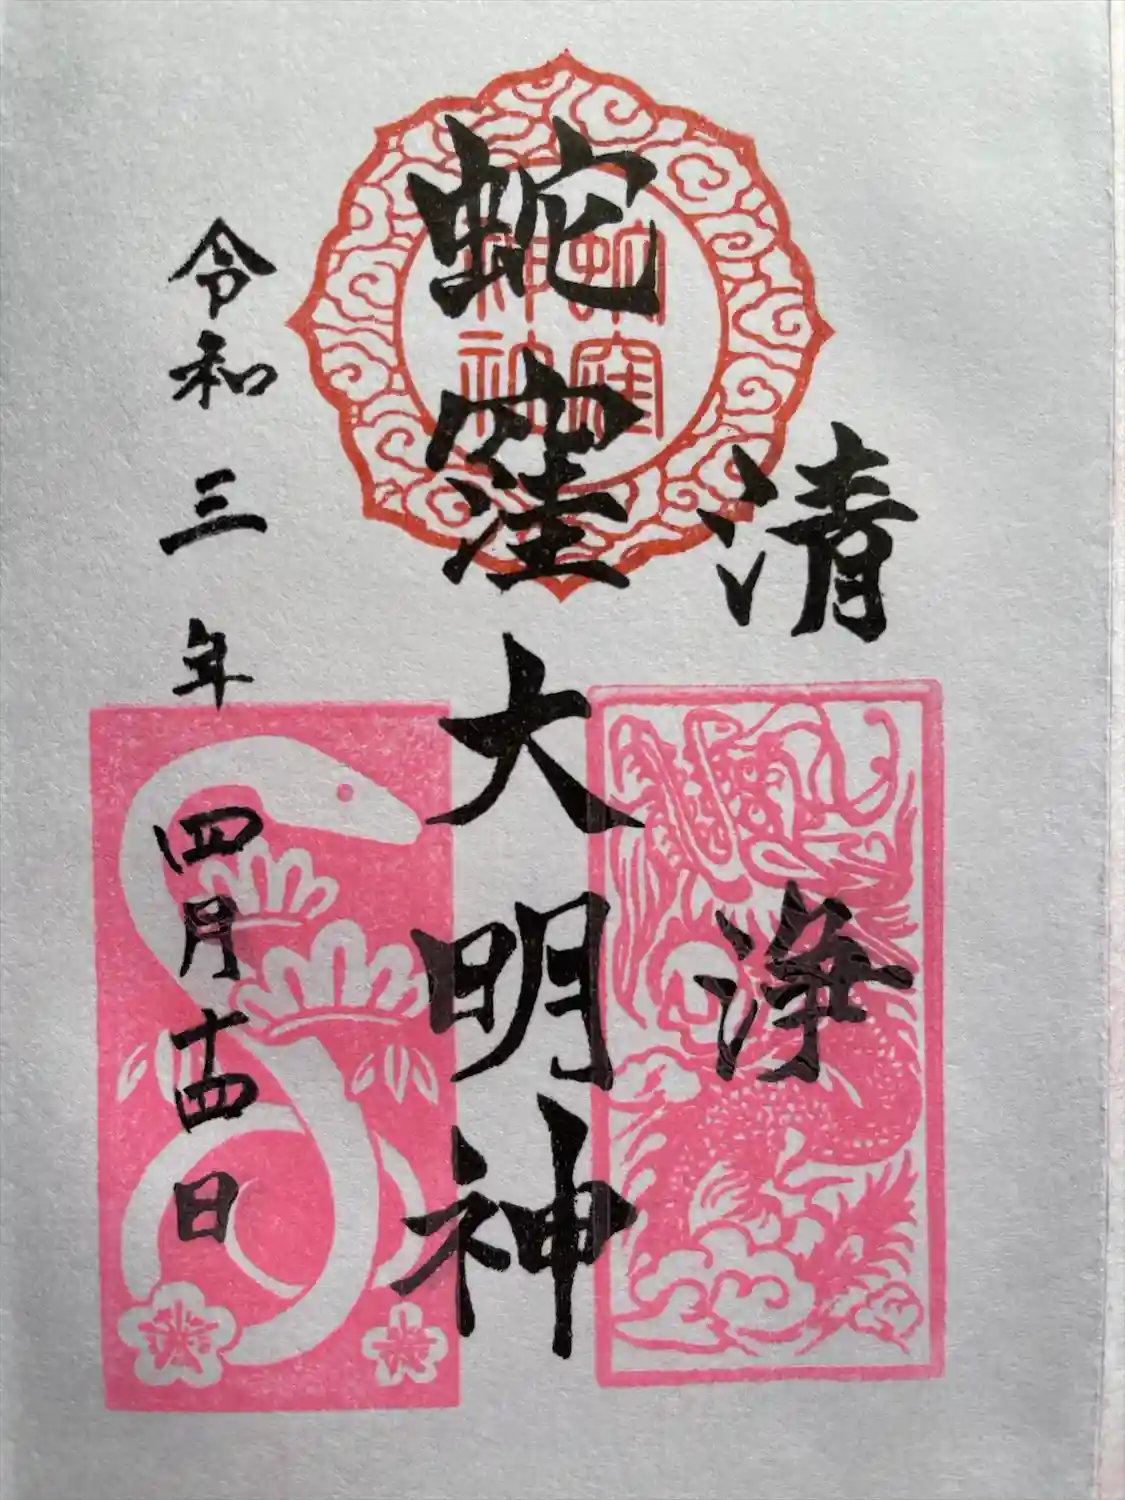 清浄
蛇窪大明神
蛇窪
神社
令和三年四月十四日